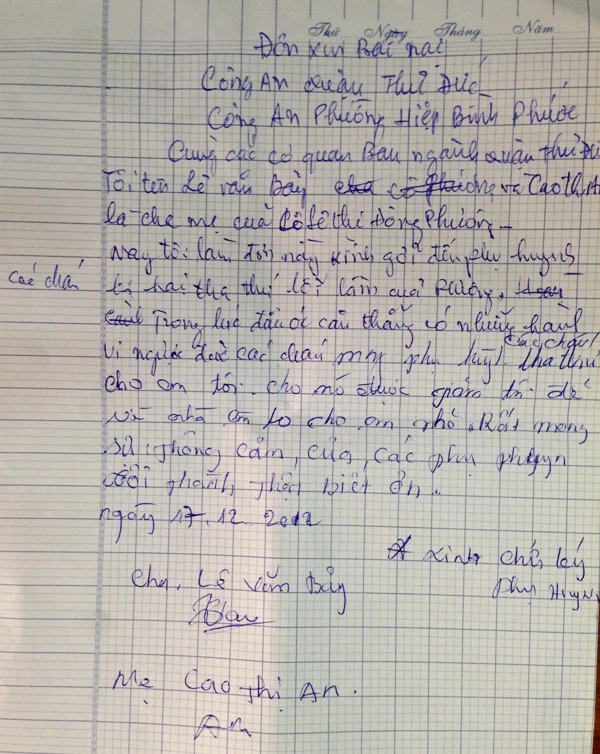 Thứ Ngày Tháng Năm
Đơn xin Bãi nại
Công An quận Thủ Đức
Công An Phường Hiệp Bình Phước
Cùng các cơ quan Ban ngành quận thủ Đứ
Tôi tên Lê văn Bảy và Cao thị An
là cha mẹ của Cô Lê thị Đông Phương
nay tôi làm đơn này kính gởi đến phụ huynh
các cháu bị hại tha thứ lỗi lầm của Phương.
Trong lúc đầu óc căn thẳng có những hành
vi ngược đãi các cháu mong phụ huynh các cháu tha thứ
cho con tôi. cho nó được giảm tội để
về nhà còn lo cho con nhỏ. Rất mong
sự thông cảm, của, các phụ huynh
tôi thành thật biết ơn.
ngày 17.12.2012
xinh chử ký
phụ Huynh
cha. Lê văn Bảy
Mẹ Cao thị An.
An